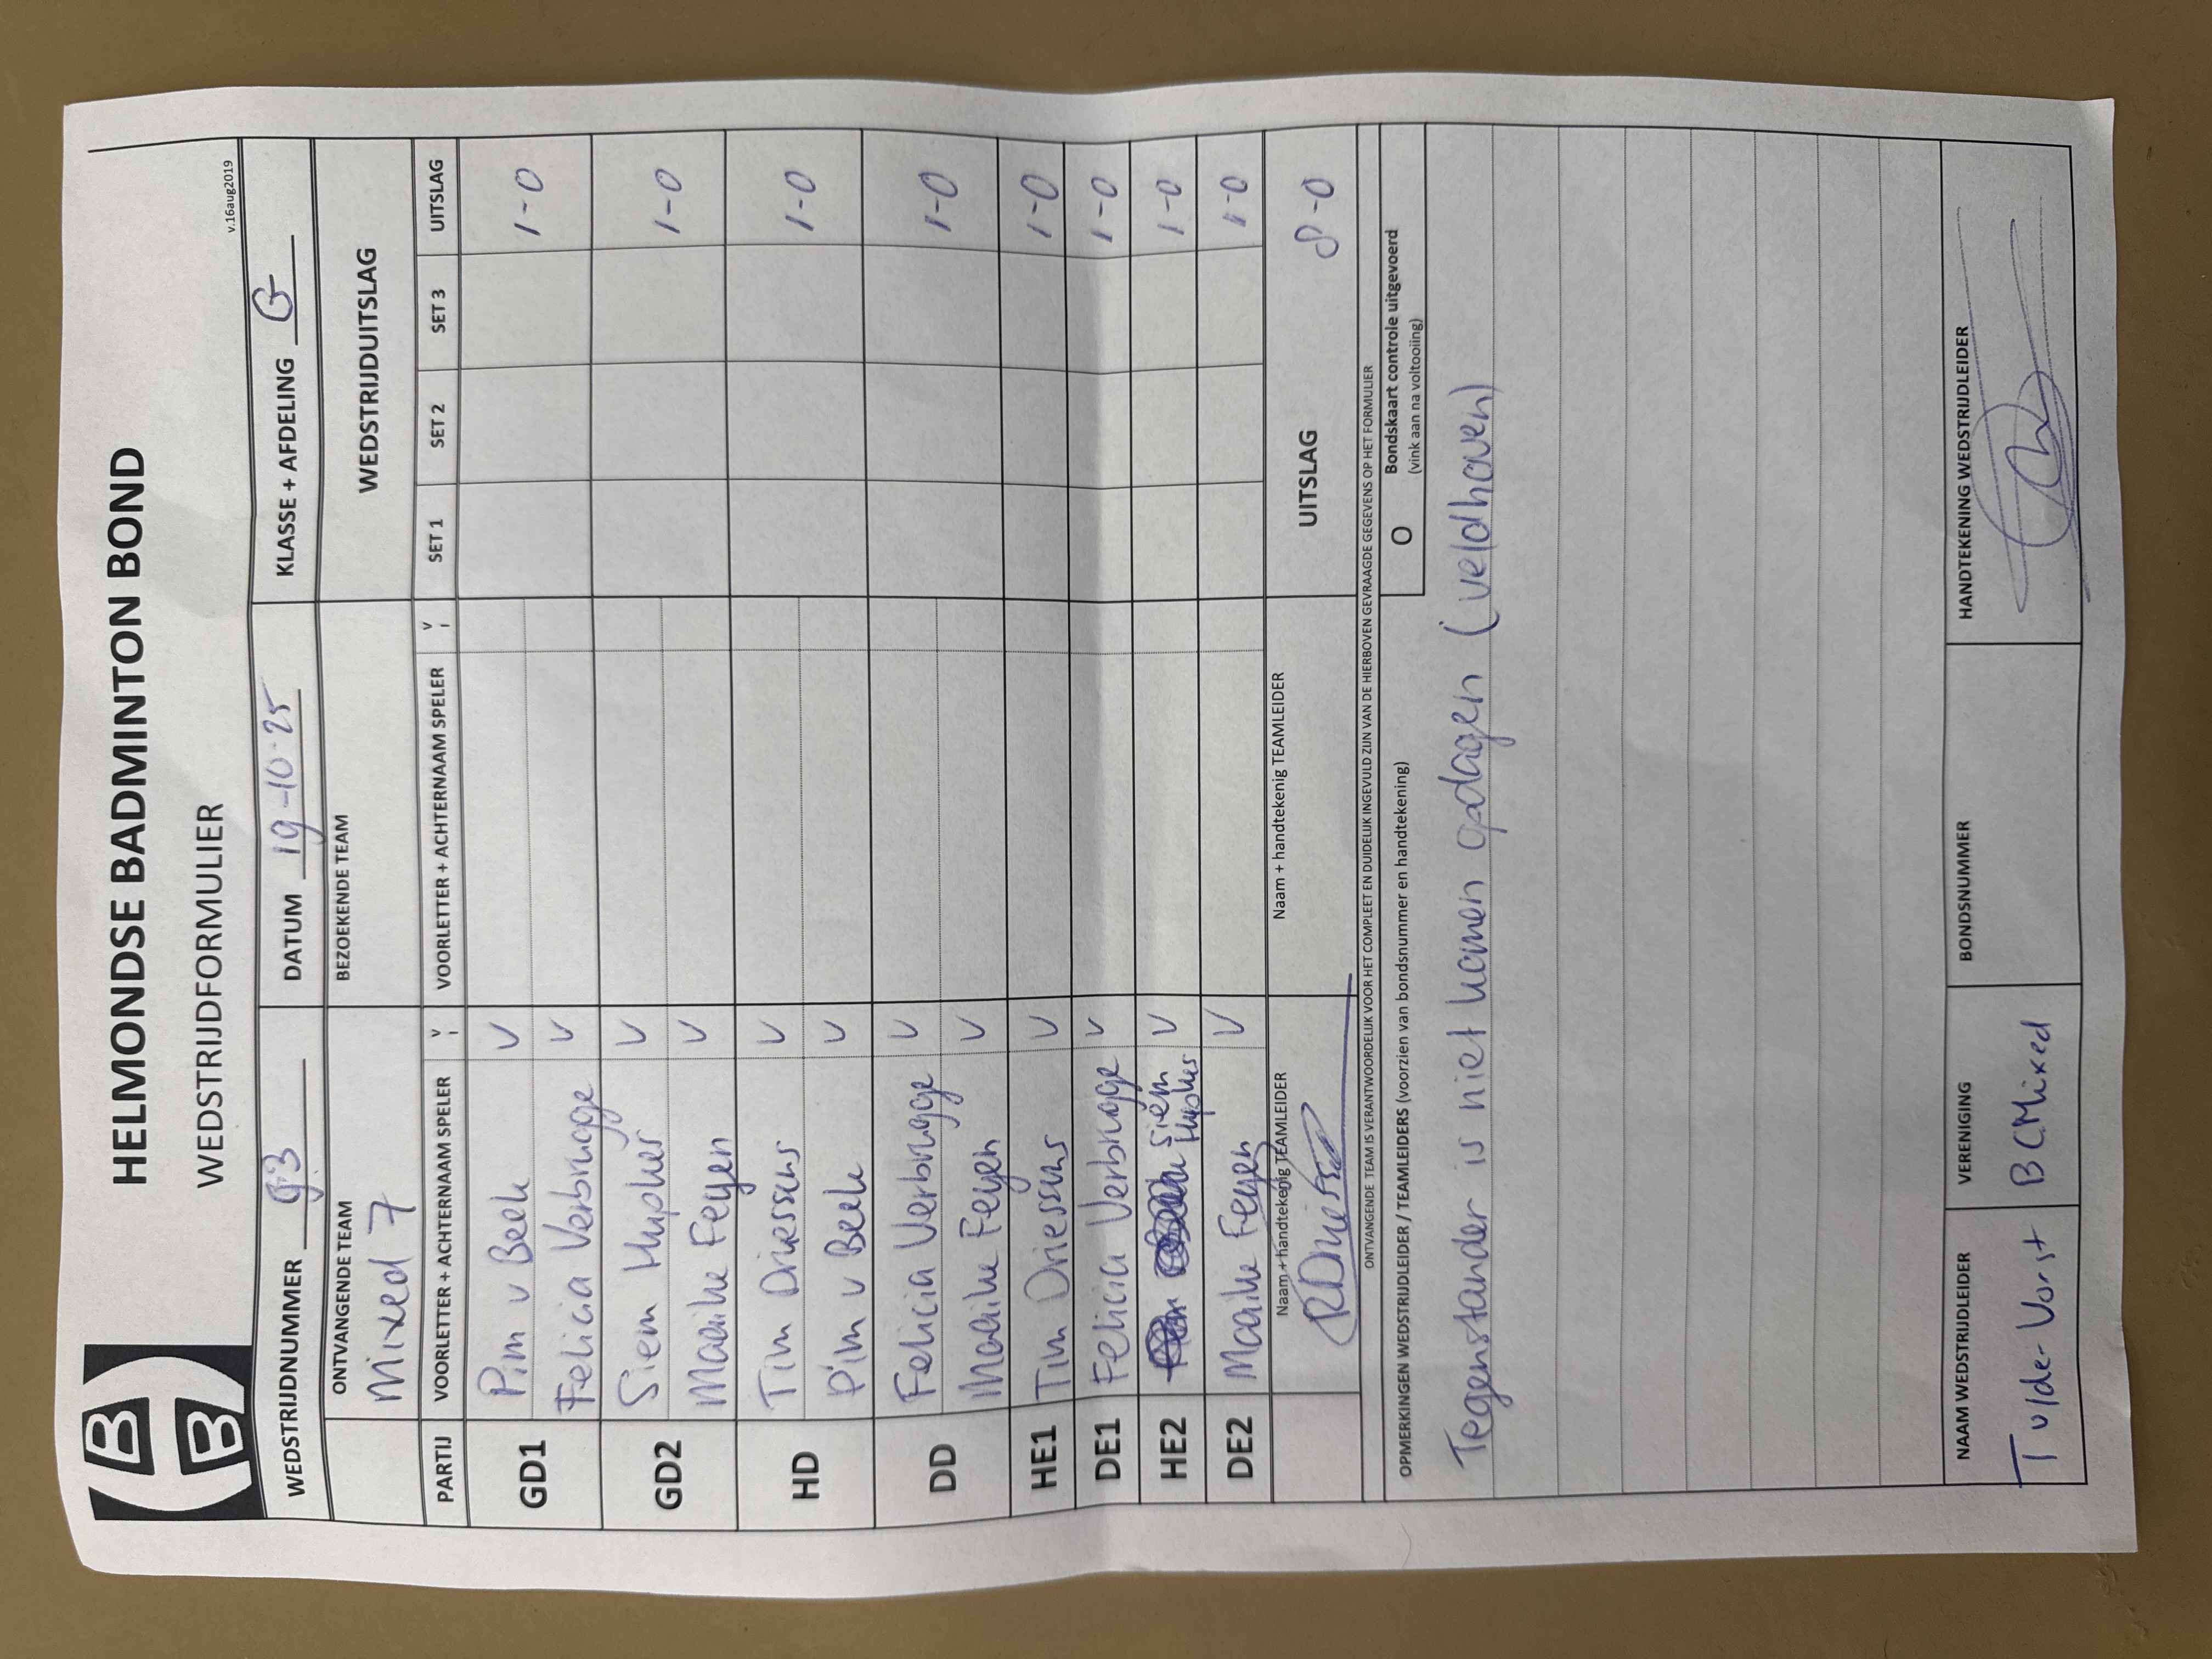 HELMONDSE BADMINTON BOND
WEDSTRIJDFORMULIER
v.16aug2019
WEDSTRIJDNUMMER G3 DATUM 19-10-25 KLASSE + AFDELING G
ONTVANGENDE TEAM BEZOEKENDE TEAM WEDSTRIJDUITSLAG
Mixed 7
PARTIJ VOORLETTER + ACHTERNAAM SPELER V VOORLETTER + ACHTERNAAM SPELER V SET 1 SET 2 SET 3 UITSLAG
GD1 Pim v Beek V 1-0
Felicia Verbrugge V
GD2 Siem Hupker V 1-0
Maaike Feyen V
HD Tim Driessens V 1-0
Pim v Beek V
DD Felicia Verbrugge V 1-0
Maaike Feyen V
HE1 Tim Driessens V 1-0
DE1 Felicia Verbrugge V 1-0
HE2 Siem Hupker V 1-0
DE2 Maaike Feyen V 1-0
Naam + handtekenig TEAMLEIDER Naam + handtekenig TEAMLEIDER UITSLAG 8-0
ONTVANGENDE TEAM IS VERANTWOORDELIJK VOOR HET COMPLEET EN DUIDELIJK INGEVULD ZIJN VAN DE HIERBOVEN GEVRAAGDE GEGEVENS OP HET FORMULIER
OPMERKINGEN WEDSTRIJDLEIDER / TEAMLEIDERS (voorzien van bondsnummer en handtekening) O Bondskaart controle uitgevoerd
(vink aan na voltooiing)
Tegenstander is niet komen opdagen (veldhoven)
NAAM WEDSTRIJDLEIDER VERENIGING BONDSNUMMER HANDTEKENING WEDSTRIJDLEIDER
Tulder-Vorst BCMixed